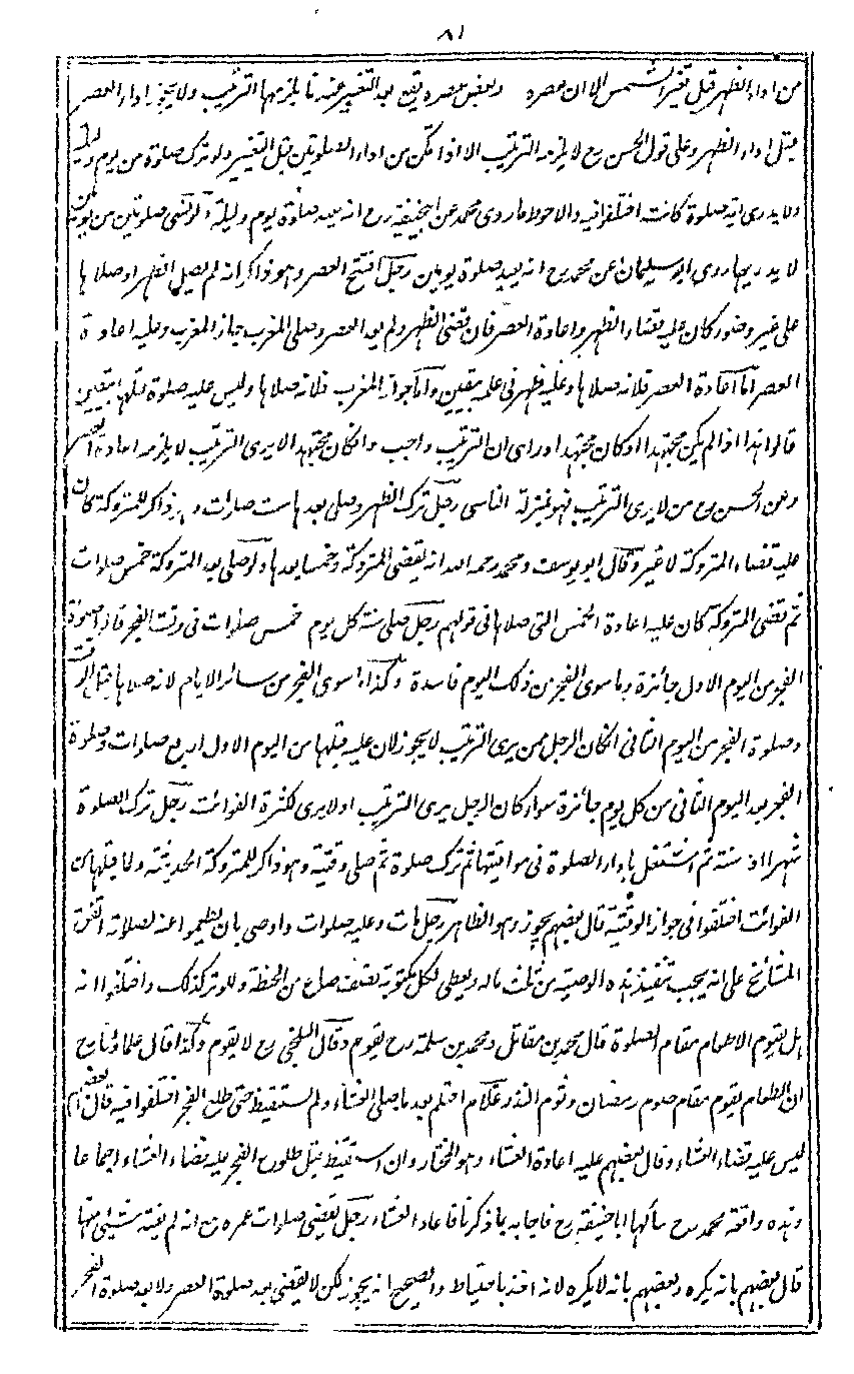 ٨١
من اداء الظهر قبل تغير الشمس الا ان عصره وبعض عصره يقع بعد التغير عندنا يلزمها الترتيب ولا يجوز اداء العصر
قبل اداء الظهر وعلى قول الحسن رح لا يلزمه الترتيب الا اذا تمكن من اداء الصلوتين قبل التغيير ولو ترك صلوة من يوم وليلة
ولا يدرى اية صلوة كانت اختلفوا فيه والاحوط ما روى محمد عن ابيحنيفة رح انه يعيد صلوة يوم وليلة ولو نسى صلوتين من يومين
لا يدريهما روى ابو سليمان عن محمد رح انه يعيد صلوة يومين رجل افتتح العصر وهو ذاكر انه لم يصل الظهر او صلاها
على غير وضوء كان عليه قضاء الظهر واعادة العصر فان قضى الظهر ولم يعد العصر وصلى المغرب جاز المغرب وعليه اعادة
العصر اما اعادة العصر فلانه صلاها وعليه ظهر فى علمه بيقين واما جواز المغرب فلانه صلاها وليس عليه صلوة قبلها بيقين
قالوا هذا اذا لم يكن مجتهدا او كان مجتهدا وراى ان الترتيب واجب وان كان مجتهدا لا يرى الترتيب لا يلزمه اعادة العصر
وعن الحسن رح من لا يرى الترتيب فهو بمنزلة الناسى رجل ترك الظهر وصلى بعدها ست صلوات وهو ذاكر للمتروكة كان
عليه قضاء المتروكة لا غير وقال ابو يوسف ومحمد رحمه الله انه يقضى المتروكة وخمسا بعدها ولو صلى بعد المتروكة خمس صلوات
ثم قضى المتروكة كان عليه اعادة الخمس التى صلاها فى قولهم رجل صلى سنة كل يوم خمس صلوات فى وقت الفجر قالوا صلوة
الفجر من اليوم الاول جائزة وما سوى الفجر من ذلك اليوم فاسدة وكذا ما سوى الفجر من سائر الايام لانه صلاها قبل الوقت
وصلوة الفجر من اليوم الثانى ان كان الرجل ممن يرى الترتيب لا يجوز لان عليه قبلها من اليوم الاول اربع صلوات وصلوة
الفجر بعد اليوم الثانى من كل يوم جائزة سواء كان الرجل يرى الترتيب او لا يرى لكثرة الفوائت رجل ترك الصلوة
شهرا او سنة ثم اشتغل باداء الصلوة فى مواقيتها ثم ترك صلوة ثم صلى وقتية وهو ذاكر للمتروكة الحديثة ولما قبلها من
الفوائت اختلفوا فى جواز الوقتية قال بعضهم يجوز وهو الظاهر رجل مات وعليه صلوات واوصى بان يطعموا عنه لصلاته اتفق
المشائخ على انه يجب تنفيذ هذه الوصية من ثلث ماله ويعطى لكل مكتوبة نصف صاع من الحنطة وللوتر كذلك واختلفوا انه
هل يقوم الاطعام مقام الصلوة قال محمد بن مقاتل ومحمد بن سلمة رح يقوم وقال البلخى رح لا يقوم وكذا قال علماؤنا رح
ان الطعام يقوم مقام صوم رمضان وصوم النذر غلام احتلم بعد ما صلى العشاء ولم يستيقظ حتى طلع الفجر اختلفوا فيه قال بعضهم
ليس عليه قضاء العشاء وقال بعضهم عليه اعادة العشاء وهو المختار وان استيقظ قبل طلوع الفجر عليه قضاء العشاء اجماعا
وهذه واقعة محمد رح سألها ابا حنيفة رح فاجابه بما ذكرنا فاعاد العشاء رجل يقضى صلوات عمره مع انه لم يفته شئ منها
قال بعضهم بانه يكره وبعضهم بانه لا يكره لانه اخذ باحتياط والصحيح انه يجوز لكن لا يقضى بعد صلوة العصر ولا بعد صلوة الفجر